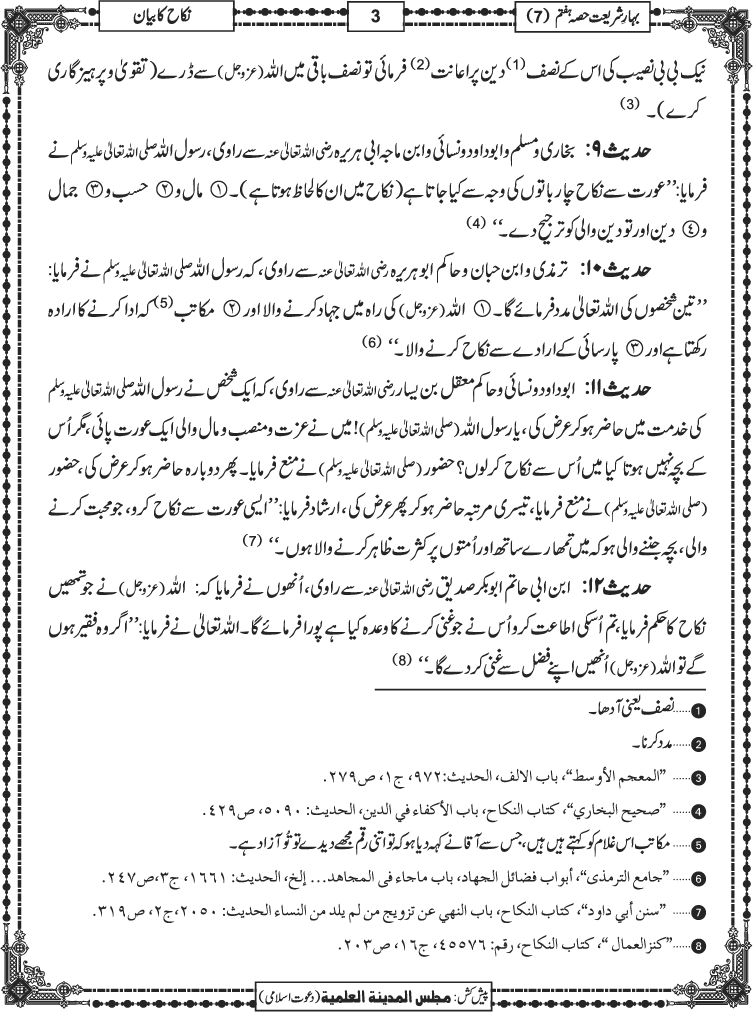 بہارِ شریعت حصہ ہفتم (7)
3
نکاح کا بیان
نیک بی بی نصیب کی اس کے نصف(1) دین پر اعانت(2) فرمائی تو نصف باقی میں اللہ (عزوجل) سے ڈرے (تقویٰ و پرہیزگاری
کرے)۔ (3)
حدیث ۹: بخاری و مسلم و ابو داود و نسائی و ابن ماجہ ابی ہریرہ رضی اللہ تعالیٰ عنہ سے راوی، رسول اللہ صلی اللہ تعالیٰ علیہ وسلم نے
فرمایا: ’’عورت سے نکاح چار باتوں کی وجہ سے کیا جاتا ہے (نکاح میں ان کا لحاظ ہوتا ہے)۔ ① مال و ② حسب و ③ جمال
و ④ دین اور تو دین والی کو ترجیح دے۔‘‘ (4)
حدیث ۱۰: ترمذی و ابن حبان و حاکم ابو ہریرہ رضی اللہ تعالیٰ عنہ سے راوی، کہ رسول اللہ صلی اللہ تعالیٰ علیہ وسلم نے فرمایا:
’’تین شخصوں کی اللہ تعالیٰ مدد فرمائے گا۔ ① اللہ (عزوجل) کی راہ میں جہاد کرنے والا اور ② مکاتب(5) کہ ادا کرنے کا ارادہ
رکھتا ہے اور ③ پارسائی کے ارادے سے نکاح کرنے والا۔‘‘ (6)
حدیث ۱۱: ابو داود و نسائی و حاکم معقل بن یسار رضی اللہ تعالیٰ عنہ سے راوی، کہ ایک شخص نے رسول اللہ صلی اللہ تعالیٰ علیہ وسلم
کی خدمت میں حاضر ہو کر عرض کی، یا رسول اللہ (صلی اللہ تعالیٰ علیہ وسلم)! میں نے عزت و منصب و مال والی ایک عورت پائی، مگر اُس
کے بچہ نہیں ہوتا کیا میں اُس سے نکاح کر لوں؟ حضور (صلی اللہ تعالیٰ علیہ وسلم) نے منع فرمایا۔ پھر دوبارہ حاضر ہو کر عرض کی، حضور
(صلی اللہ تعالیٰ علیہ وسلم) نے منع فرمایا، تیسری مرتبہ حاضر ہو کر پھر عرض کی، ارشاد فرمایا: ’’ایسی عورت سے نکاح کرو، جو محبت کرنے
والی، بچہ جننے والی ہو کہ میں تمھارے ساتھ اور اُمتوں پر کثرت ظاہر کرنے والا ہوں۔‘‘ (7)
حدیث ۱۲: ابن ابی حاتم ابو بکر صدیق رضی اللہ تعالیٰ عنہ سے راوی، اُنھوں نے فرمایا کہ: اللہ (عزوجل) نے جو تمھیں
نکاح کا حکم فرمایا، تم اُسکی اطاعت کرو اُس نے جو غنی کرنے کا وعدہ کیا ہے پورا فرمائے گا۔ اللہ تعالیٰ نے فرمایا: ’’اگر وہ فقیر ہوں
گے تو اللہ (عزوجل) اُنھیں اپنے فضل سے غنی کر دے گا۔‘‘ (8)
1 ......نصف یعنی آدھا۔
2 ......مدد کرنا۔
3 ......”المعجم الأوسط“، باب الالف، الحدیث: ۹۷۲، ج۱، ص۲۷۹.
4 ......”صحیح البخاري“، کتاب النکاح، باب الأکفاء في الدین، الحدیث: ۵۰۹۰، ص۴۲۹.
5 ......مکاتب اس غلام کو کہتے ہیں، جس سے آقا نے کہہ دیا ہو کہ تو اتنی رقم مجھے دیدے تو تُو آزاد ہے۔
6 ......”جامع الترمذی“، أبواب فضائل الجھاد، باب ماجاء فی المجاھد... إلخ، الحدیث: ۱۶۶۱، ج۳، ص۲۴۷.
7 ......”سنن أبي داود“، کتاب النکاح، باب النھي عن تزویج من لم یلد من النساء الحدیث: ۲۰۵۰، ج۲، ص۳۱۹.
8 ......”کنزالعمال“، کتاب النکاح، رقم: ۴۵۵۷۶، ج۱۶، ص۲۰۳.
پیش کش: مجلس المدینة العلمیة (دعوت اسلامی)